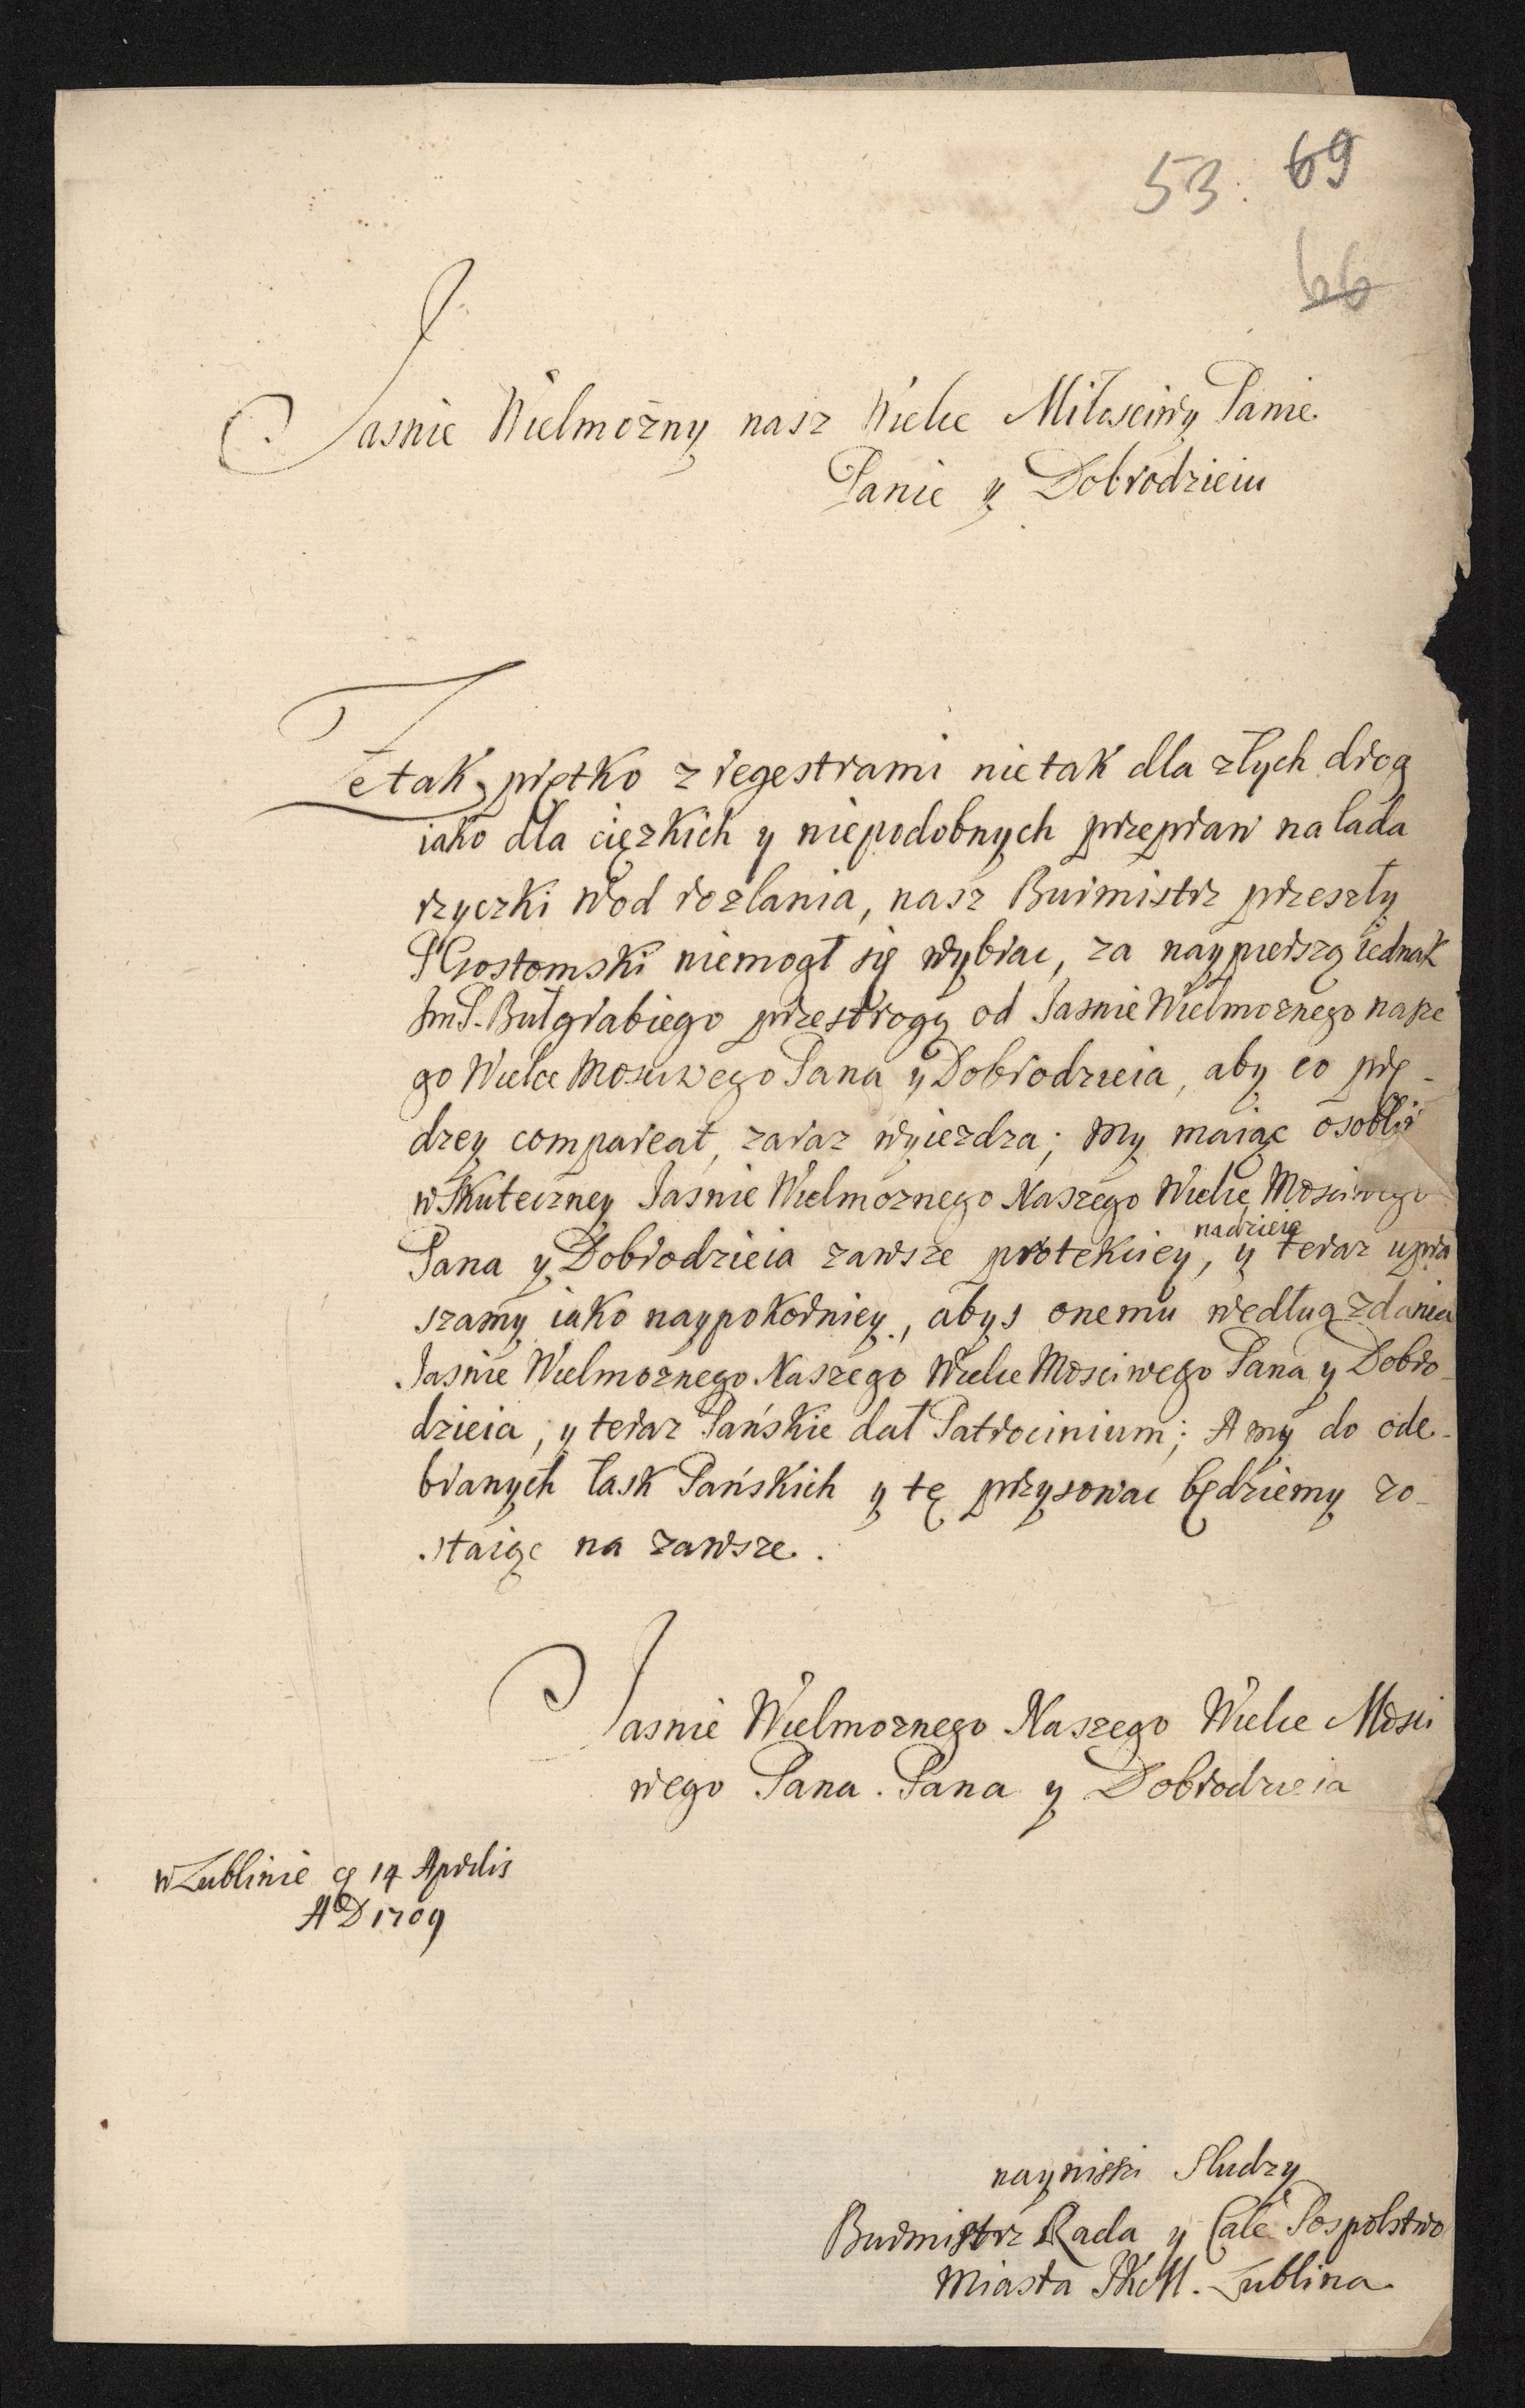 53. 69
66
Jasnie Wielmożny nasz Wielce Miłosciwy Panie
Panie y Dobrodzieiu
Że tak prętko z regestrami nie tak dla złych drog
iako dla cięzkich y niepodobnych przepraw na lada
rzyczki wod rozlania, nasz Burmistrz przeszły
P Gostomski niemogł się wybrac, za naypierszą iednak
Jm P. Bulgrabiego przestrogą od Jasnie Wielmoznego nasze
go Wielce Mosciwego Pana y Dobrodzieia, aby co prę-
dzey compareat, zaraz wyiezdza; My maiąc osobli
w skuteczney Jasnie Wielmoznego Naszego Wielce Mosciwego
Pana y Dobrodzieia zawsze protekciey, nadzieię y teraz upra
szamy iako naypokorniey, abys onemu według zdania
Jasnie Wielmoznego Naszego Wielce Mosciwego Pana y Dobro-
dzieia, y teraz Pańskie dał Patrocinium; A my do ode-
branych łask Pańskich y tę przysowac będziemy zo-
staiąc na zawsze.
Jasnie Wielmoznego Naszego Wielce Mosci
wego Pana. Pana y Dobrodzieia
w Lublinie 14 Aprilis
AD 1709
nayniżsi Słudzy
Burmistrz Rada y Całe Pospolstwo
Miasta JKeM. Lublina.